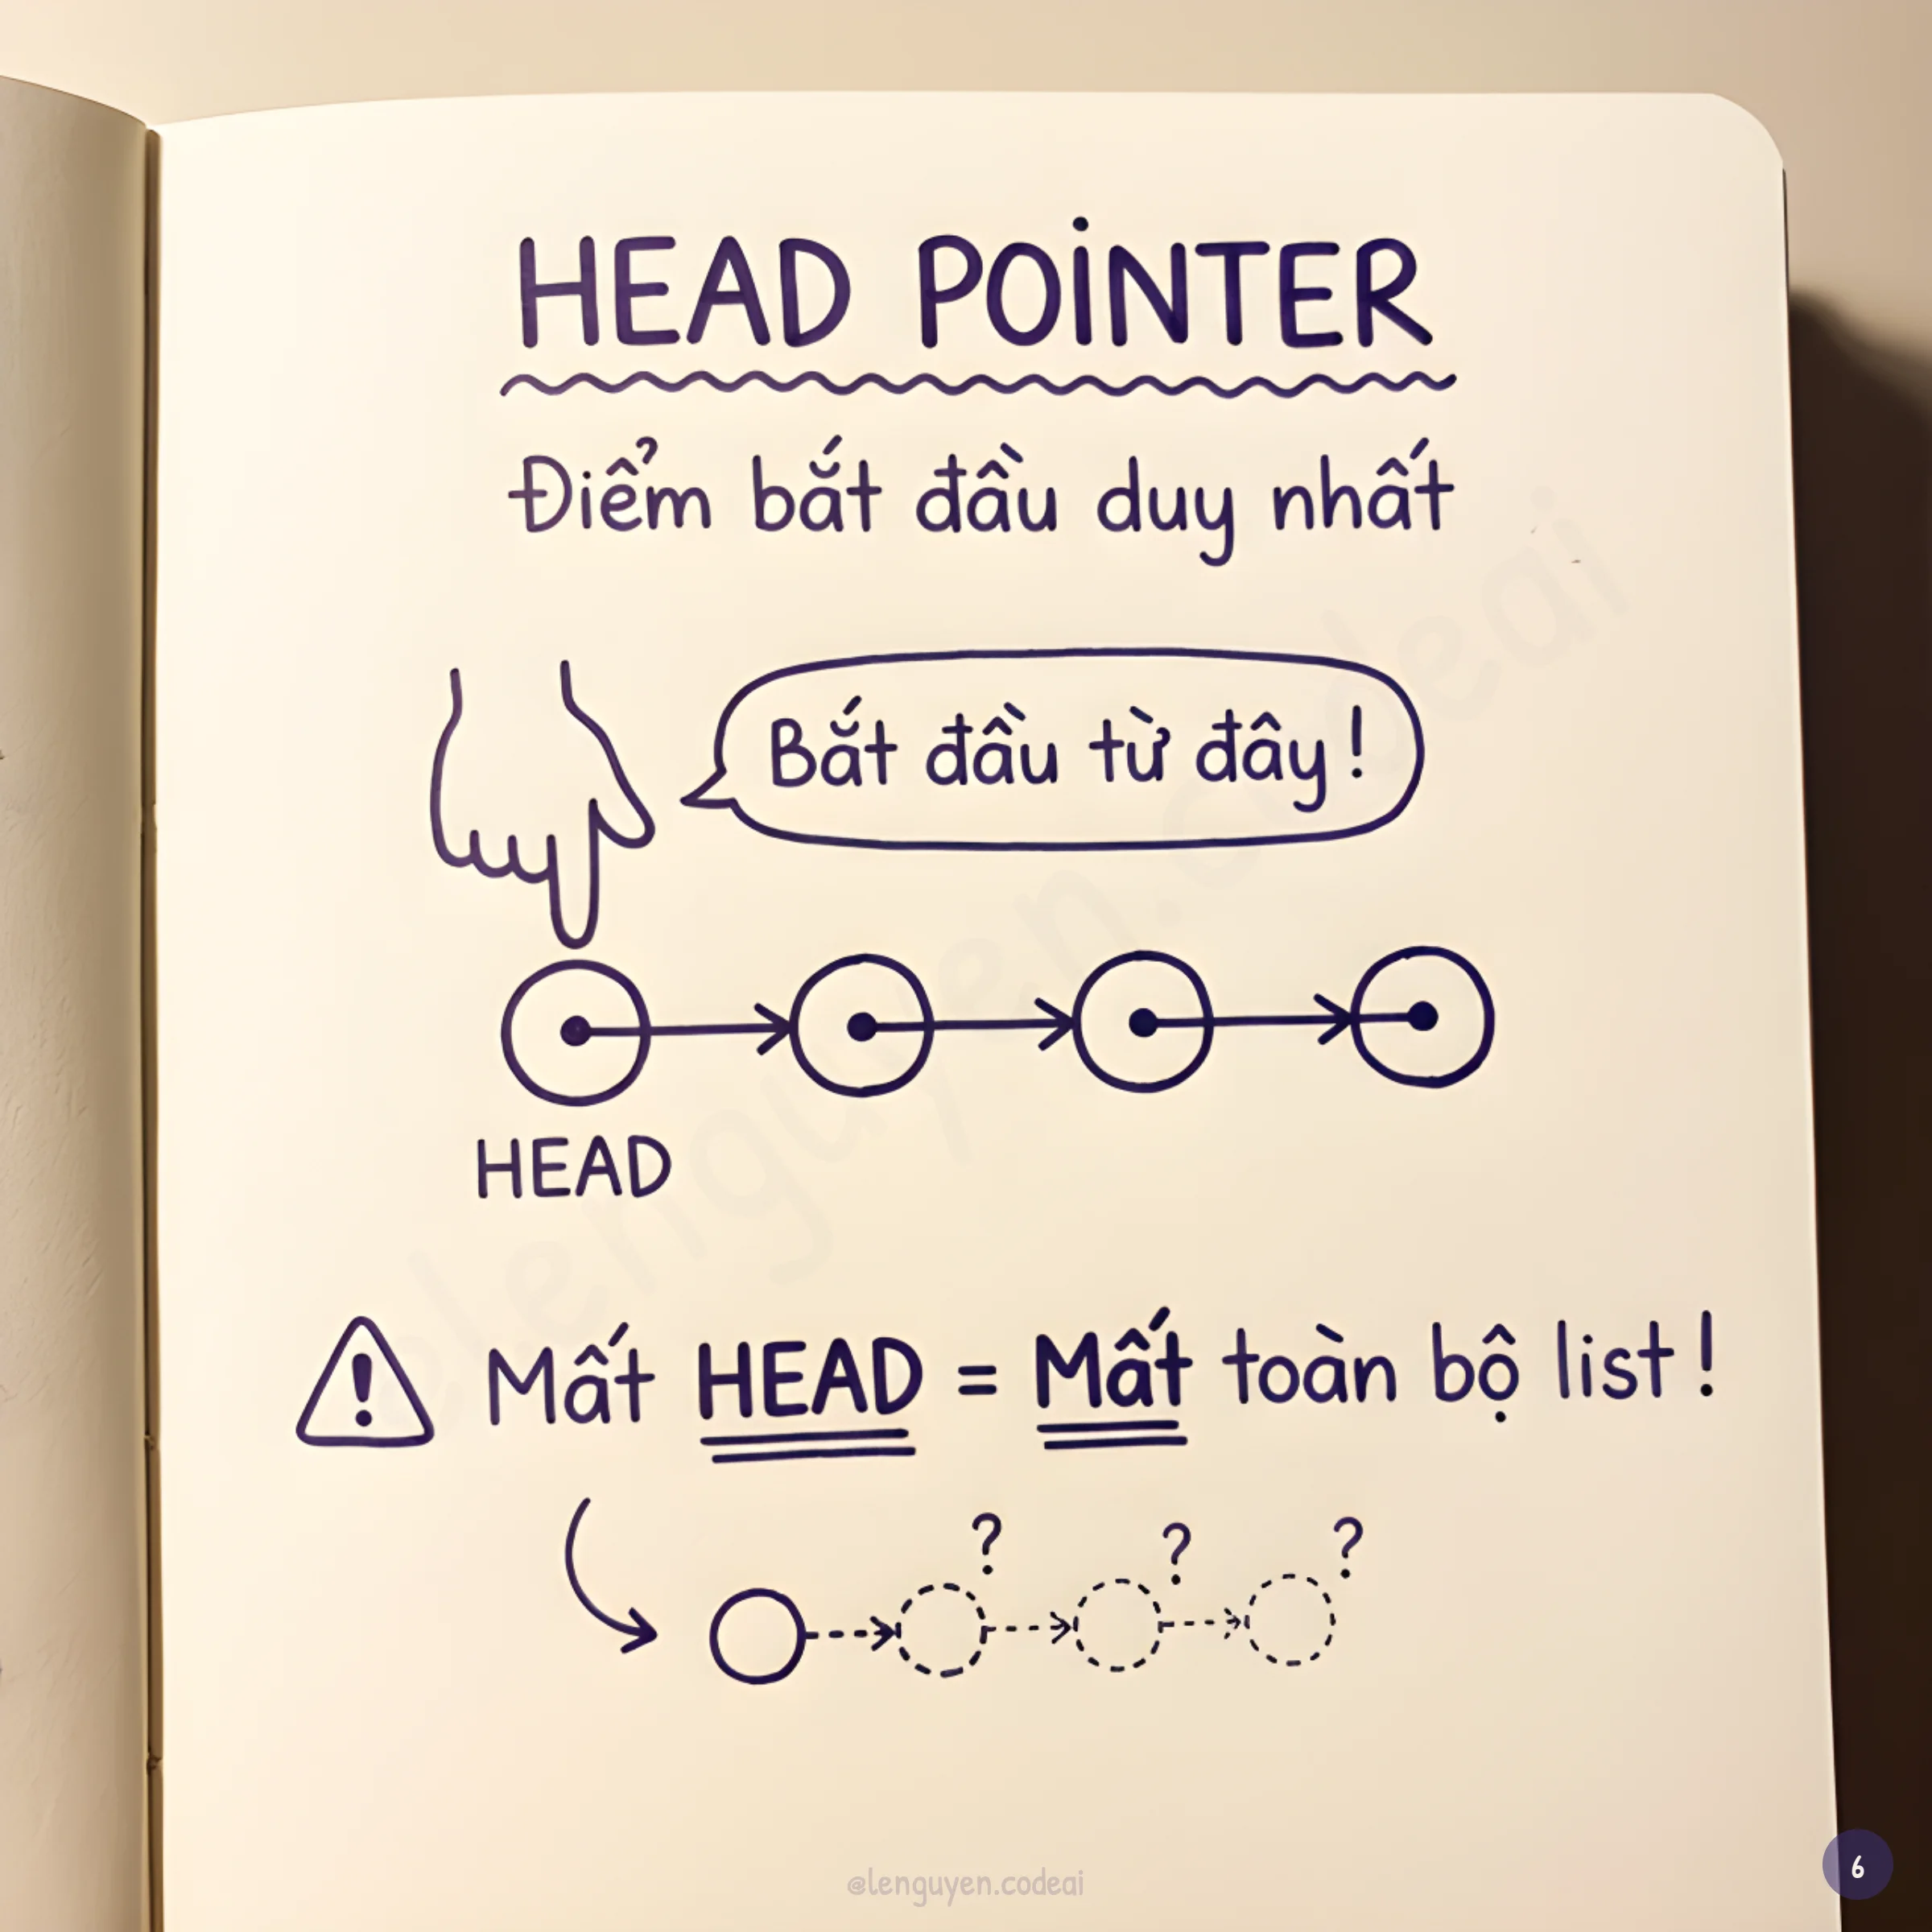 HEAD POINTER
Điểm bắt đầu duy nhất
Bắt đầu từ đây!
HEAD
Mất HEAD = Mất toàn bộ list!
? ? ?
@lenguyen.codeai
@lenguyen.codeai
6